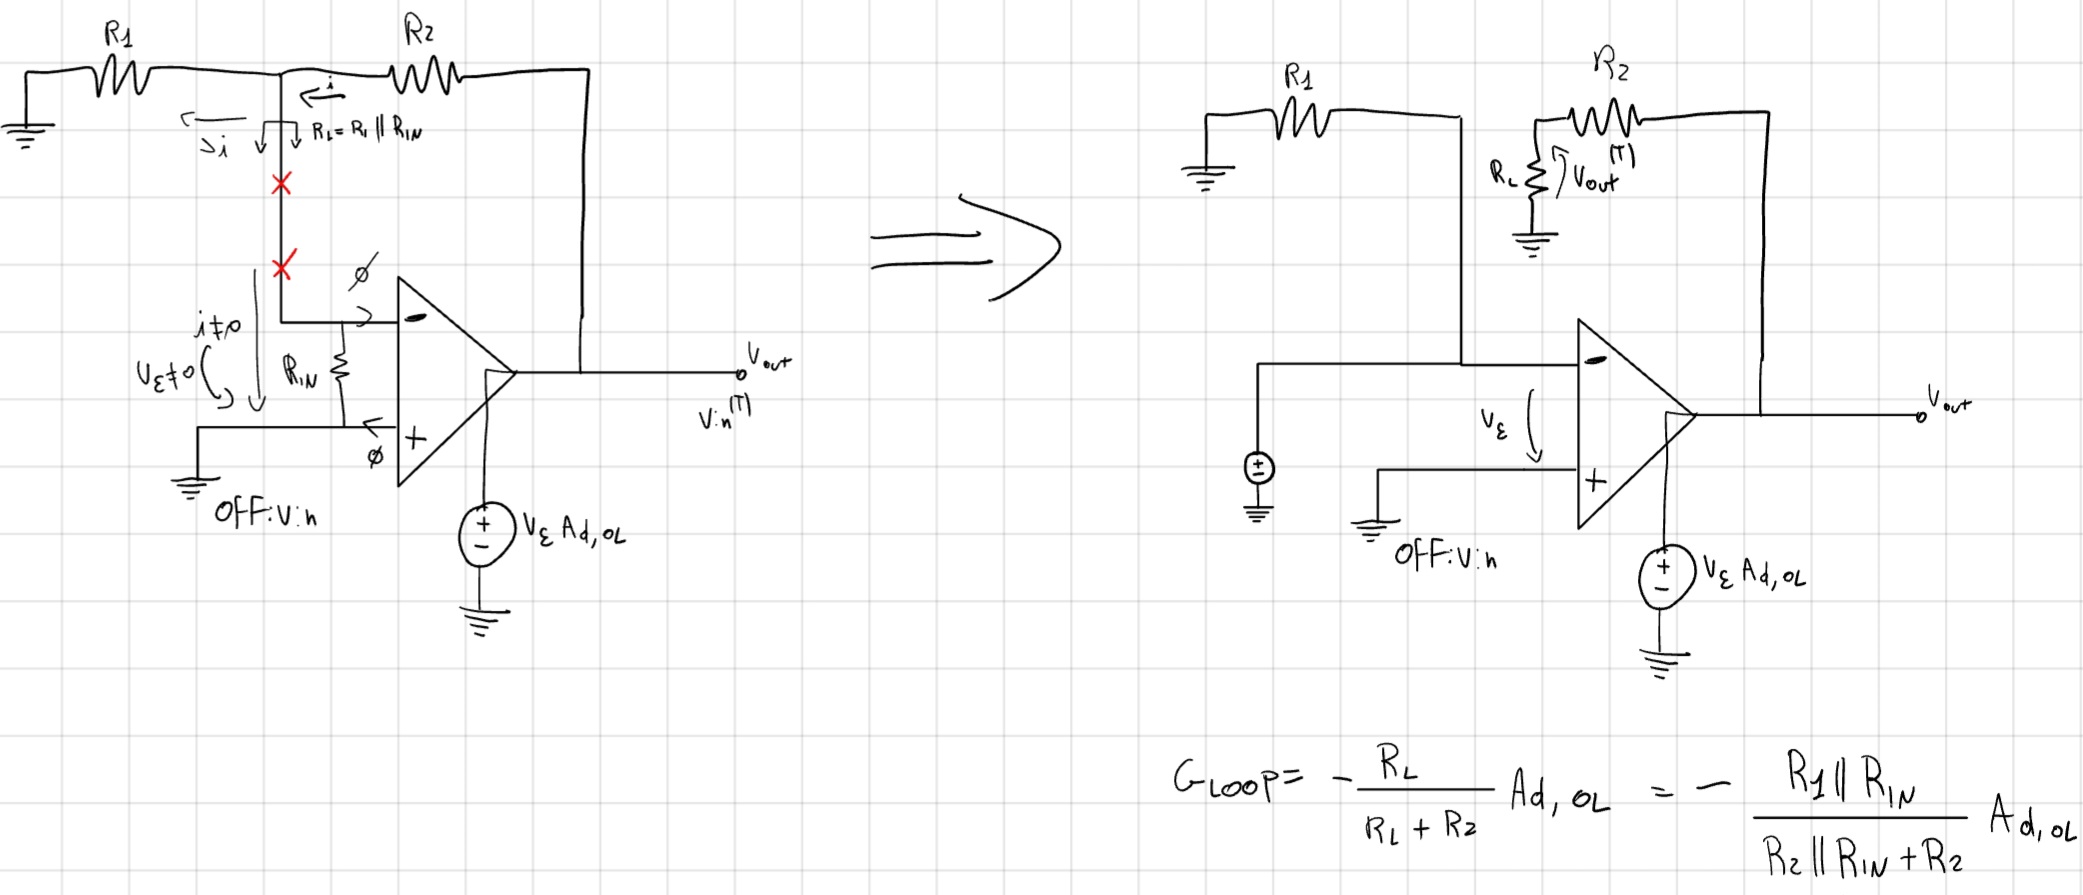 R1
R2
i
RL = R1 || RIN
>i
ø
i≠0
Vε≠0
RIN
-
+
ø
OFF: Vin
Vout
Vin(T)
+
-
Vε Ad,OL
R1
R2
RL
Vout(T)
Vε
-
+
±
OFF: Vin
Vout
+
-
Vε Ad,OL
GLOOP = - RL / (RL + R2) Ad,OL = - R1 || RIN / (R2 || RIN + R2) Ad,OL